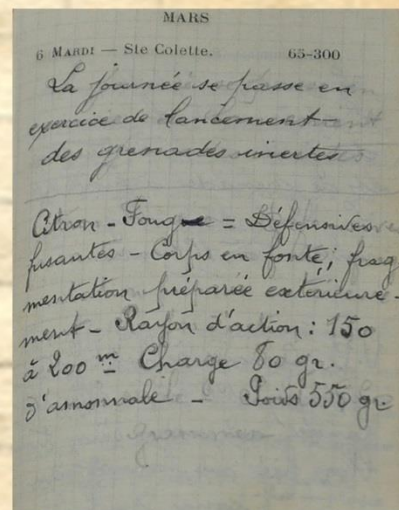 MARS
6 MARDI — Ste Colette. 65-300
La journée se passe en
exercice de lancement
des grenades inertes
Citron - Foug = Défensives
fusantes - Corps en fonte; frag
mentation préparée extérieure-
ment - Rayon d'action : 150
à 200 m Charge 80 gr.
d'amonnale - Poids 550 gr